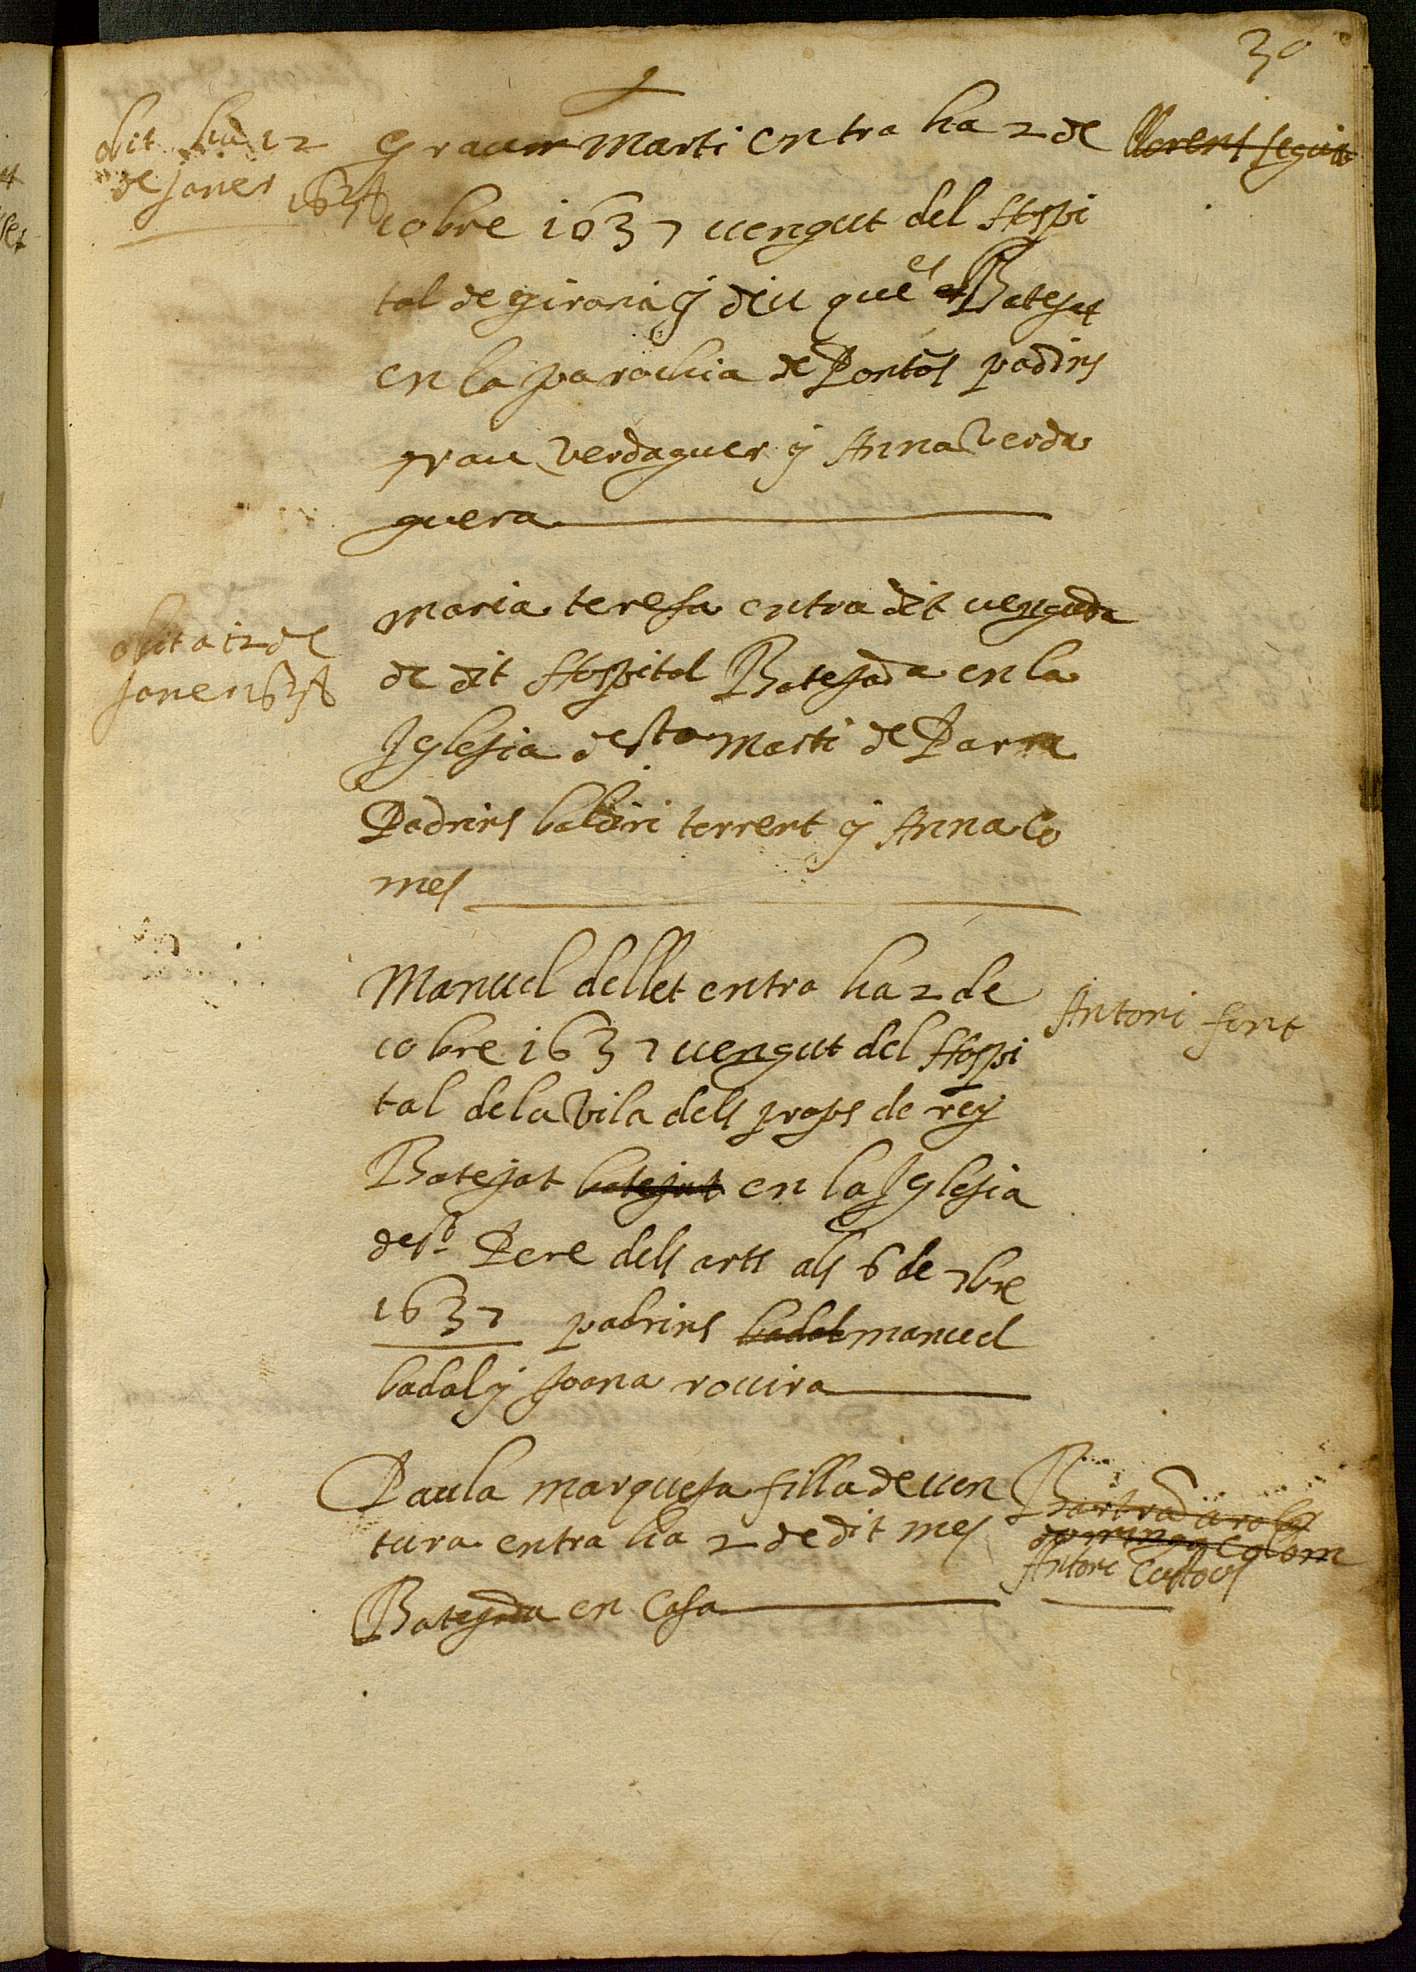 30
obit ha 12
de janer 1638
grau marti entra ha 2 de
llorens segui
10bre 1637 vengut del Hospi
tal de girona y diu que es Batejat
en la parochia de Pontos padrins
grau verdaguer y Anna Verda
guera
obit a 12 de
janer 1638
maria teresa entra dit venguda
de dit Hospital Batejada en la
Iglesia de sta marti de Parra
Padrins baldiri torrent y Anna Co
mes
Manuel dellet entra ha 2 de
Antoni font
10bre 1637 vengut del Hospi
tal de la Vila dels props de rey
Batejat batejat en la Iglesia
de st Pere dels arts als 6 de 7bre
1637 padrins badal manuel
badal y Joana rovira
Paula marquesa filla de ven
tura entra ha 2 de dit mes
Batejada en Casa
colom
Antoni